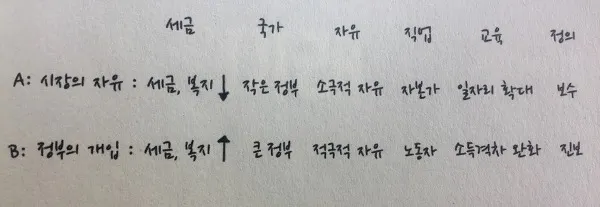 세금 국가 자유 직업 교육 정의
A: 시장의 자유 : 세금, 복지 ↓ 작은 정부 소극적 자유 자본가 일자리 확대 보수
B: 정부의 개입 : 세금, 복지 ↑ 큰 정부 적극적 자유 노동자 소득격차 완화 진보